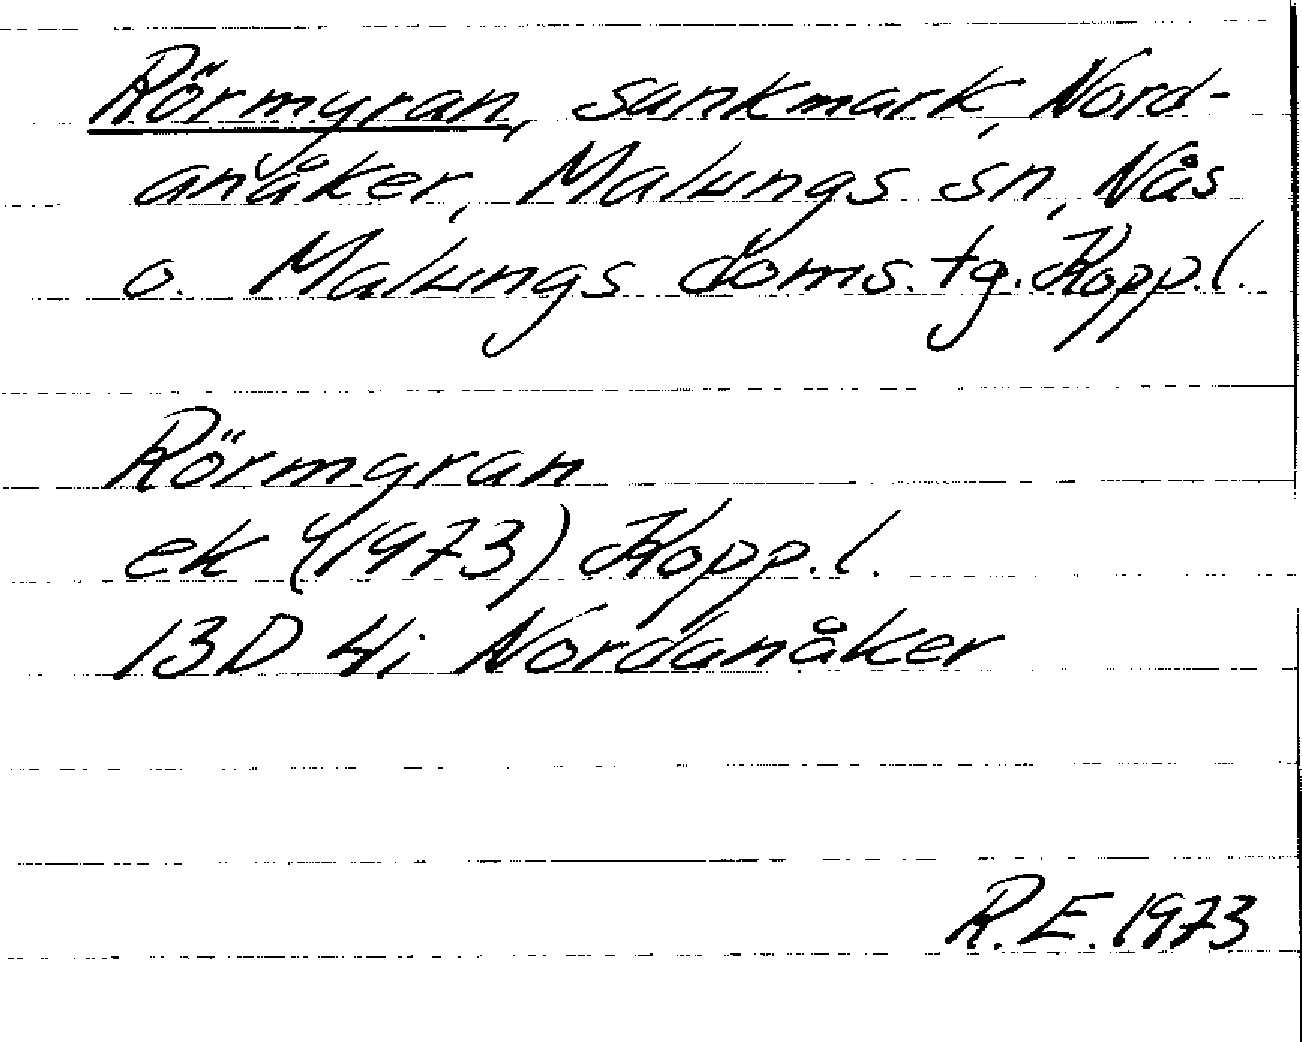 Rörmyran, sankmark, Nord-
anåker, Malungs sn, Nås
o. Malungs doms. tg. Kopp. l.
Rörmyran
ek (1973) Kopp. l.
13D 4i Nordanåker
R.E. 1973